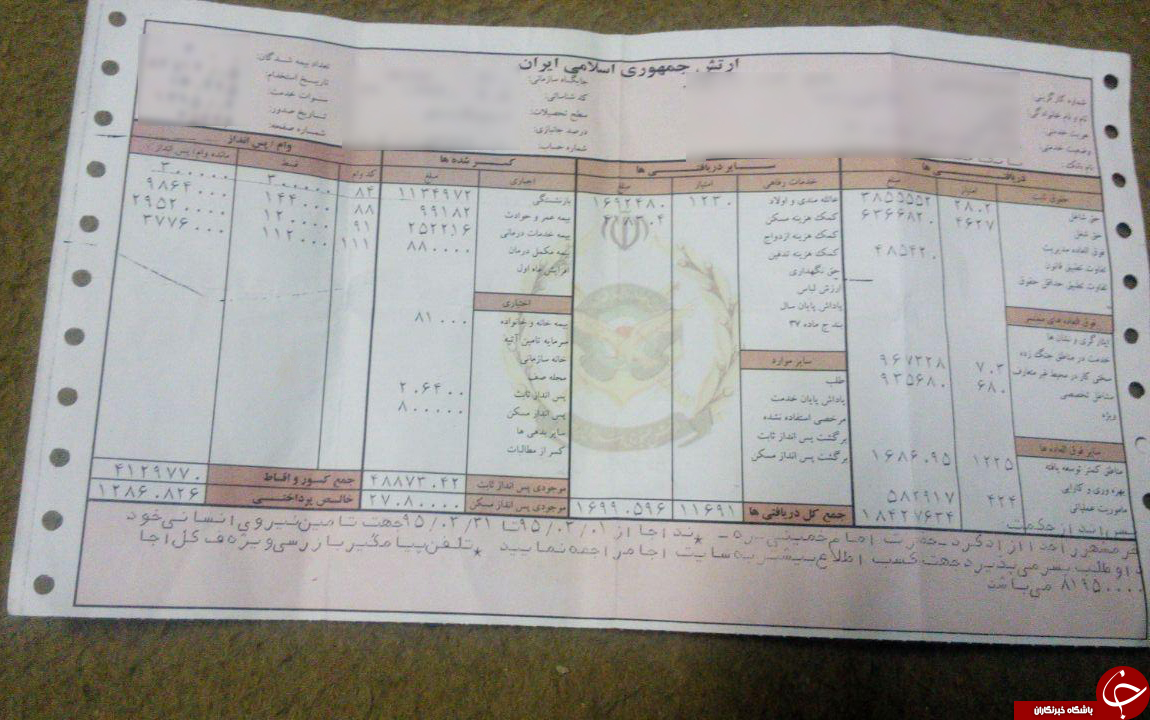 ارتش جمهوری اسلامی ایران
شماره کارگزینی:
نام و نام خانوادگی:
هویت خدمتی:
وضعیت خدمتی:
نام بانک:
جایگاه سازمانی:
کد شناسائی:
سطح تحصیلات:
درصد جانبازی:
شماره حساب:
تعداد بیمه شدگان:
تاریخ استخدام:
سنوات خدمت:
تاریخ صدور:
شماره صفحه:
دریافتی ها
حقوق ثابت امتیاز مبلغ
حق شاغل ۲۸۰۲ ۳۸۵۵۵۵۲
حق شغل ۴۶۲۷ ۶۳۶۶۸۲۰
فوق العاده مدیریت
تفاوت تطبیق قانون ۴۸۵۴۲۰
تفاوت تطبیق حداقل حقوق
فوق العاده های مستمر
ایثارگری و نشان ها
خدمت در مناطق جنگ زده
سختی کار در محیط غیر متعارف ۷۰۳ ۹۶۷۳۲۸
مشاغل تخصصی ۶۸۰ ۹۳۵۶۸۰
ویژه
سایر فوق العاده ها
مناطق کمتر توسعه یافته ۱۲۲۵ ۱۶۸۶۰۹۵
بهره وری و کارایی
ماموریت عملیاتی ۴۲۴ ۵۸۲۹۱۷
۱۸۴۲۷۶۳۴
سایر دریافتی ها
خدمات رفاهی امتیاز مبلغ
عائله مندی و اولاد ۱۲۳۰ ۱۶۹۲۴۸۰
کمک هزینه مسکن
کمک هزینه ازدواج
کمک هزینه تدفین
حق نگهداری
ارزش لباس
پاداش پایان سال
بند ج ماده ۳۷
سایر موارد
طلب
پاداش پایان خدمت
مرخصی استفاده نشده
برگشت پس انداز ثابت
برگشت پس انداز مسکن
جمع کل دریافتی ها ۱۱۶۹۱ ۱۶۹۹۰۵۹۶
کسر شده ها
اجباری مبلغ
بازنشستگی ۱۱۳۴۹۷۲
بیمه عمر و حوادث ۹۹۱۸۲
بیمه خدمات درمانی ۲۵۲۲۱۶
بیمه مکمل درمان ۸۸۰۰۰۰
افزایش ماه اول
اختیاری
بیمه خانه و خانواده ۸۱۰۰۰
سرمایه تامین آتیه
خانه سازمانی
مجله صف
پس انداز ثابت ۲۰۶۴۰۰
پس انداز مسکن ۸۰۰۰۰۰
سایر بدهی ها
کسر از مطالبات
موجودی پس انداز ثابت ۴۸۸۷۳۰۴۲
موجودی پس انداز مسکن ۲۷۰۸۰۰۰۰
وام / پس انداز
کد وام قسط مانده وام / پس انداز
۸۴ ۳۰۰۰۰۰ ۳۰۰۰۰۰۰
۸۸ ۱۴۴۰۰۰ ۹۸۶۴۰۰۰
۹۱ ۱۲۰۰۰۰ ۲۹۵۲۰۰۰۰
۱۱۱ ۱۱۲۰۰۰ ۳۷۷۶۰۰۰
جمع کسور و اقساط ۴۱۲۹۷۷۰
خالص پرداختی ۱۲۸۶۰۸۲۶
خرمشهر را خدا آزاد کرد - حضرت امام خمینی - ره - * نداجا از ۹۵/۰۲/۰۱ تا ۹۵/۰۲/۳۱ جهت تامین نیروی انسانی خود
داوطلب بسر می پذیرد جهت کسب اطلاع بیشتر به سایت اجا مراجعه نمایید * تلفن پیامگیر بازرسی ویژه ف کل اجا
۸۱۹۵۰۰۰۰ می باشد
باشگاه خبرنگاران